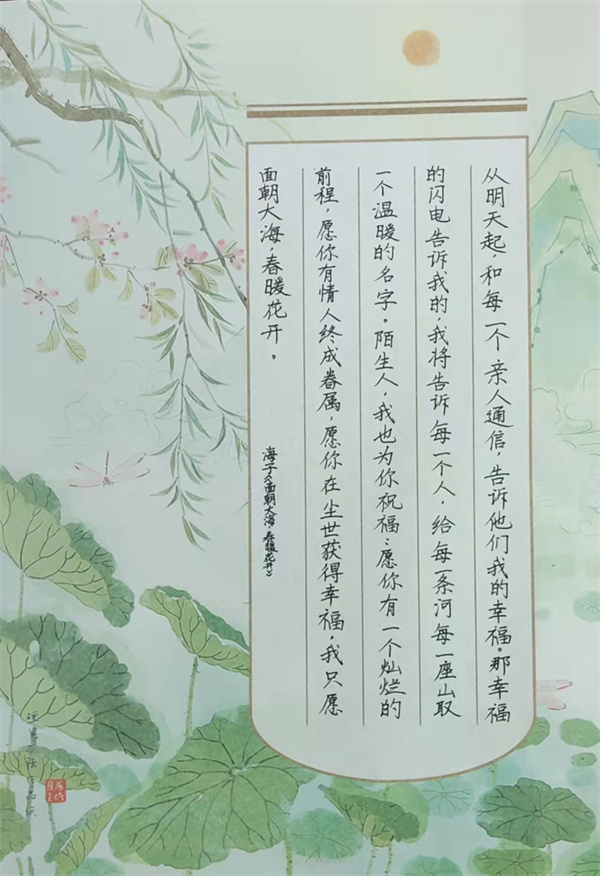 从明天起，和每一个亲人通信，告诉他们我的幸福。那幸福
的闪电告诉我的，我将告诉每一个人，给每一条河每一座山取
一个温暖的名字。陌生人，我也为你祝福：愿你有一个灿烂的
前程，愿你有情人终成眷属，愿你在尘世获得幸福，我只愿
面朝大海，春暖花开。
海子《面朝大海，春暖花开》